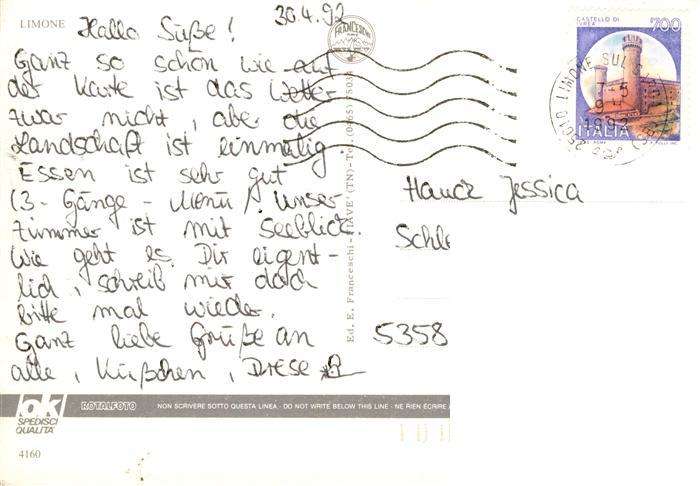 LIMONE
30.4.92
Hallo Süße!
Ganz so schön wie auf
der Karte ist das Wetter
zwar nicht, aber die
Landschaft ist einmalig
Essen ist sehr gut
(3-Gänge-Menü)! Unser
Zimmer ist mit Seeblick.
Wie geht es Dir eigent-
lich, schreib mir doch
bitte mal wieder.
Ganz liebe Grüße an
alle, Küßchen,
FRANCESCHI
Ed. E. Franceschi - FIAVE' (TN) - Tel. (0465)
CASTELLO DI IVREA
700
ITALIA
25010 LIMONE SUL GARDA (BS)
1992
Hauck Jessica
Schle
5358
ok
SPEDISCI QUALITA'
ROTALFOTO
NON SCRIVERE SOTTO QUESTA LINEA - DO NOT WRITE BELOW THIS LINE - NE RIEN ÉCRIRE
4160